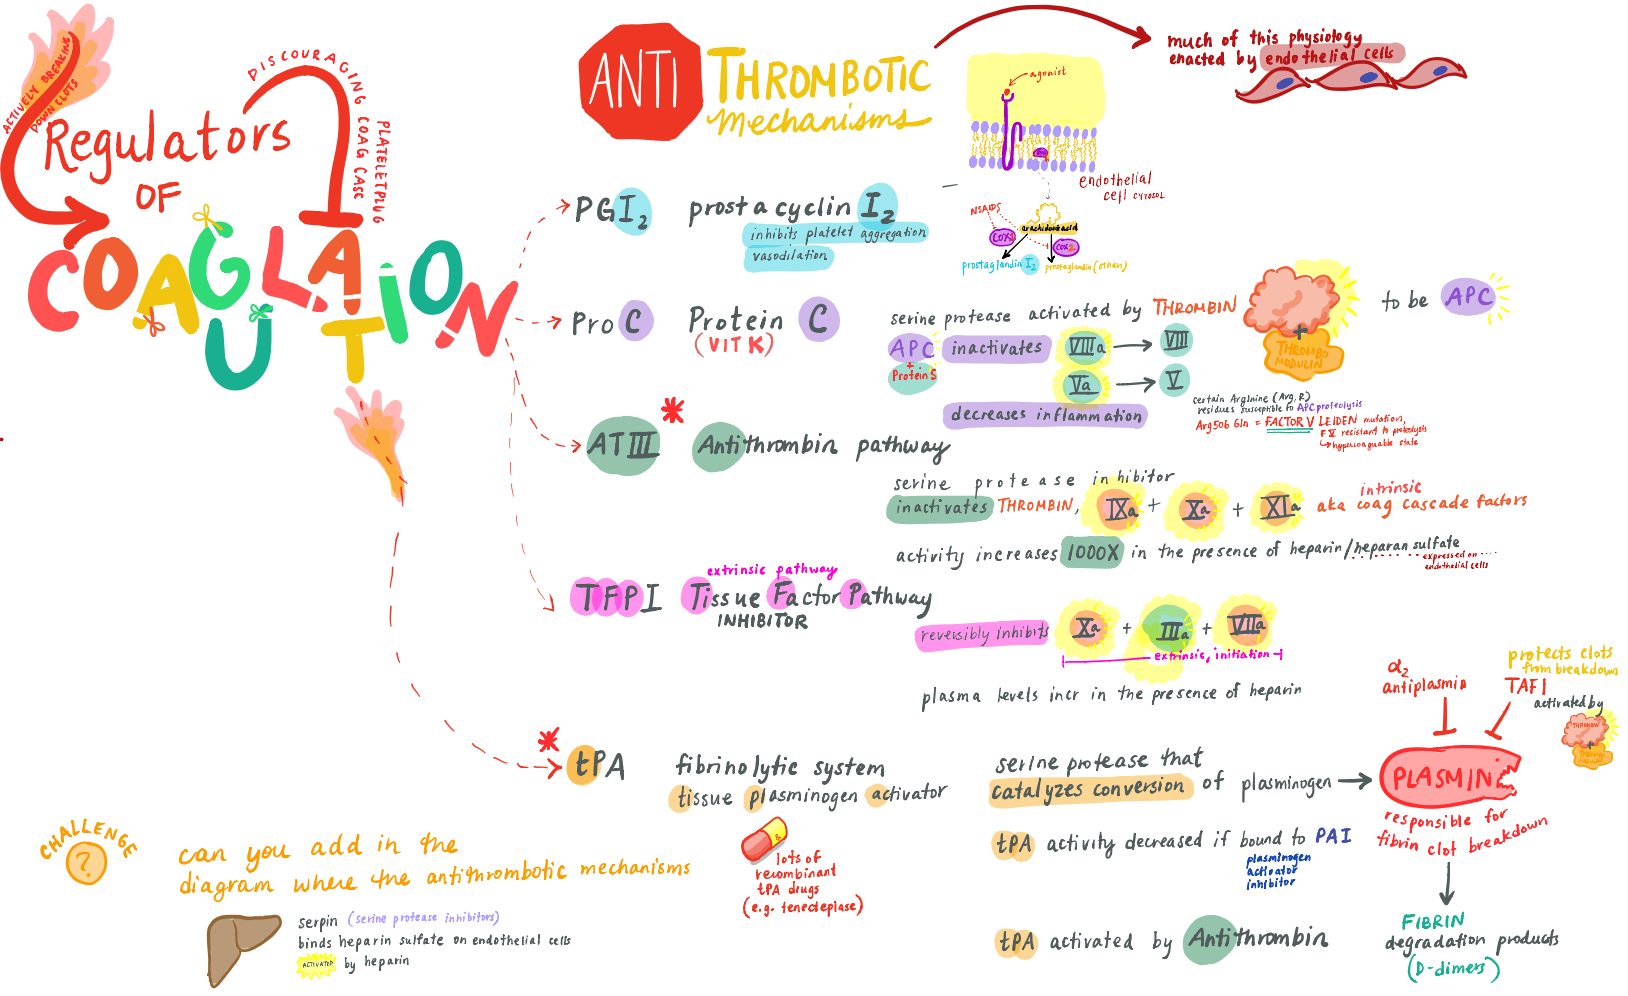 ACTIVELY BREAKING
DOWN CLOTS
Regulators
OF
COAGULATION
DISCOURAGING COAG CASC
PLATELET PLUG
ANTI
THROMBOTIC
Mechanisms
much of this physiology
enacted by endothelial cells
agonist
endothelial
cell cytosol
NSAIDS
arachidonic acid
COX1
COX2
prostaglandin I2
prostaglandin (others)
PGI2 prostacyclin I2
inhibits platelet aggregation
vasodilation
Pro C Protein C
(VIT K)
serine protease activated by THROMBIN
+
THROMBO
MODULIN
to be APC
APC inactivates VIIIa → VIII
+
Protein S
Va → V
decreases inflammation
certain Arginine (Arg, R)
residues susceptible to APC proteolysis
Arg506 Gln = FACTOR V LEIDEN mutation,
FV resistant to proteolysis
↳ hypercoaguable state
ATIII * Antithrombin pathway
serine protease inhibitor
inactivates THROMBIN, IXa + Xa + XIa aka intrinsic coag cascade factors
activity increases 1000X in the presence of heparin/heparan sulfate
expressed on
endothelial cells
extrinsic pathway
TFPI Tissue Factor Pathway
INHIBITOR
reversibly inhibits Xa + IIIa + VIIa
extrinsic, initiation
plasma levels incr in the presence of heparin
* tPA fibrinolytic system
tissue plasminogen activator
lots of
recombinant
tPA drugs
(e.g. tenecteplase)
serine protease that
catalyzes conversion of plasminogen → PLASMIN
α2
antiplasmin
protects clots
from breakdown
TAFI
activated by
THROMBIN
+
THROMBO MODULIN
responsible for
fibrin clot breakdown
tPA activity decreased if bound to PAI
plasminogen
activator
inhibitor
tPA activated by Antithrombin
FIBRIN
degradation products
(D-dimers)
CHALLENGE
?
can you add in the
diagram where the antithrombotic mechanisms
serpin (serine protease inhibitors)
binds heparin sulfate on endothelial cells
ACTIVATED by heparin